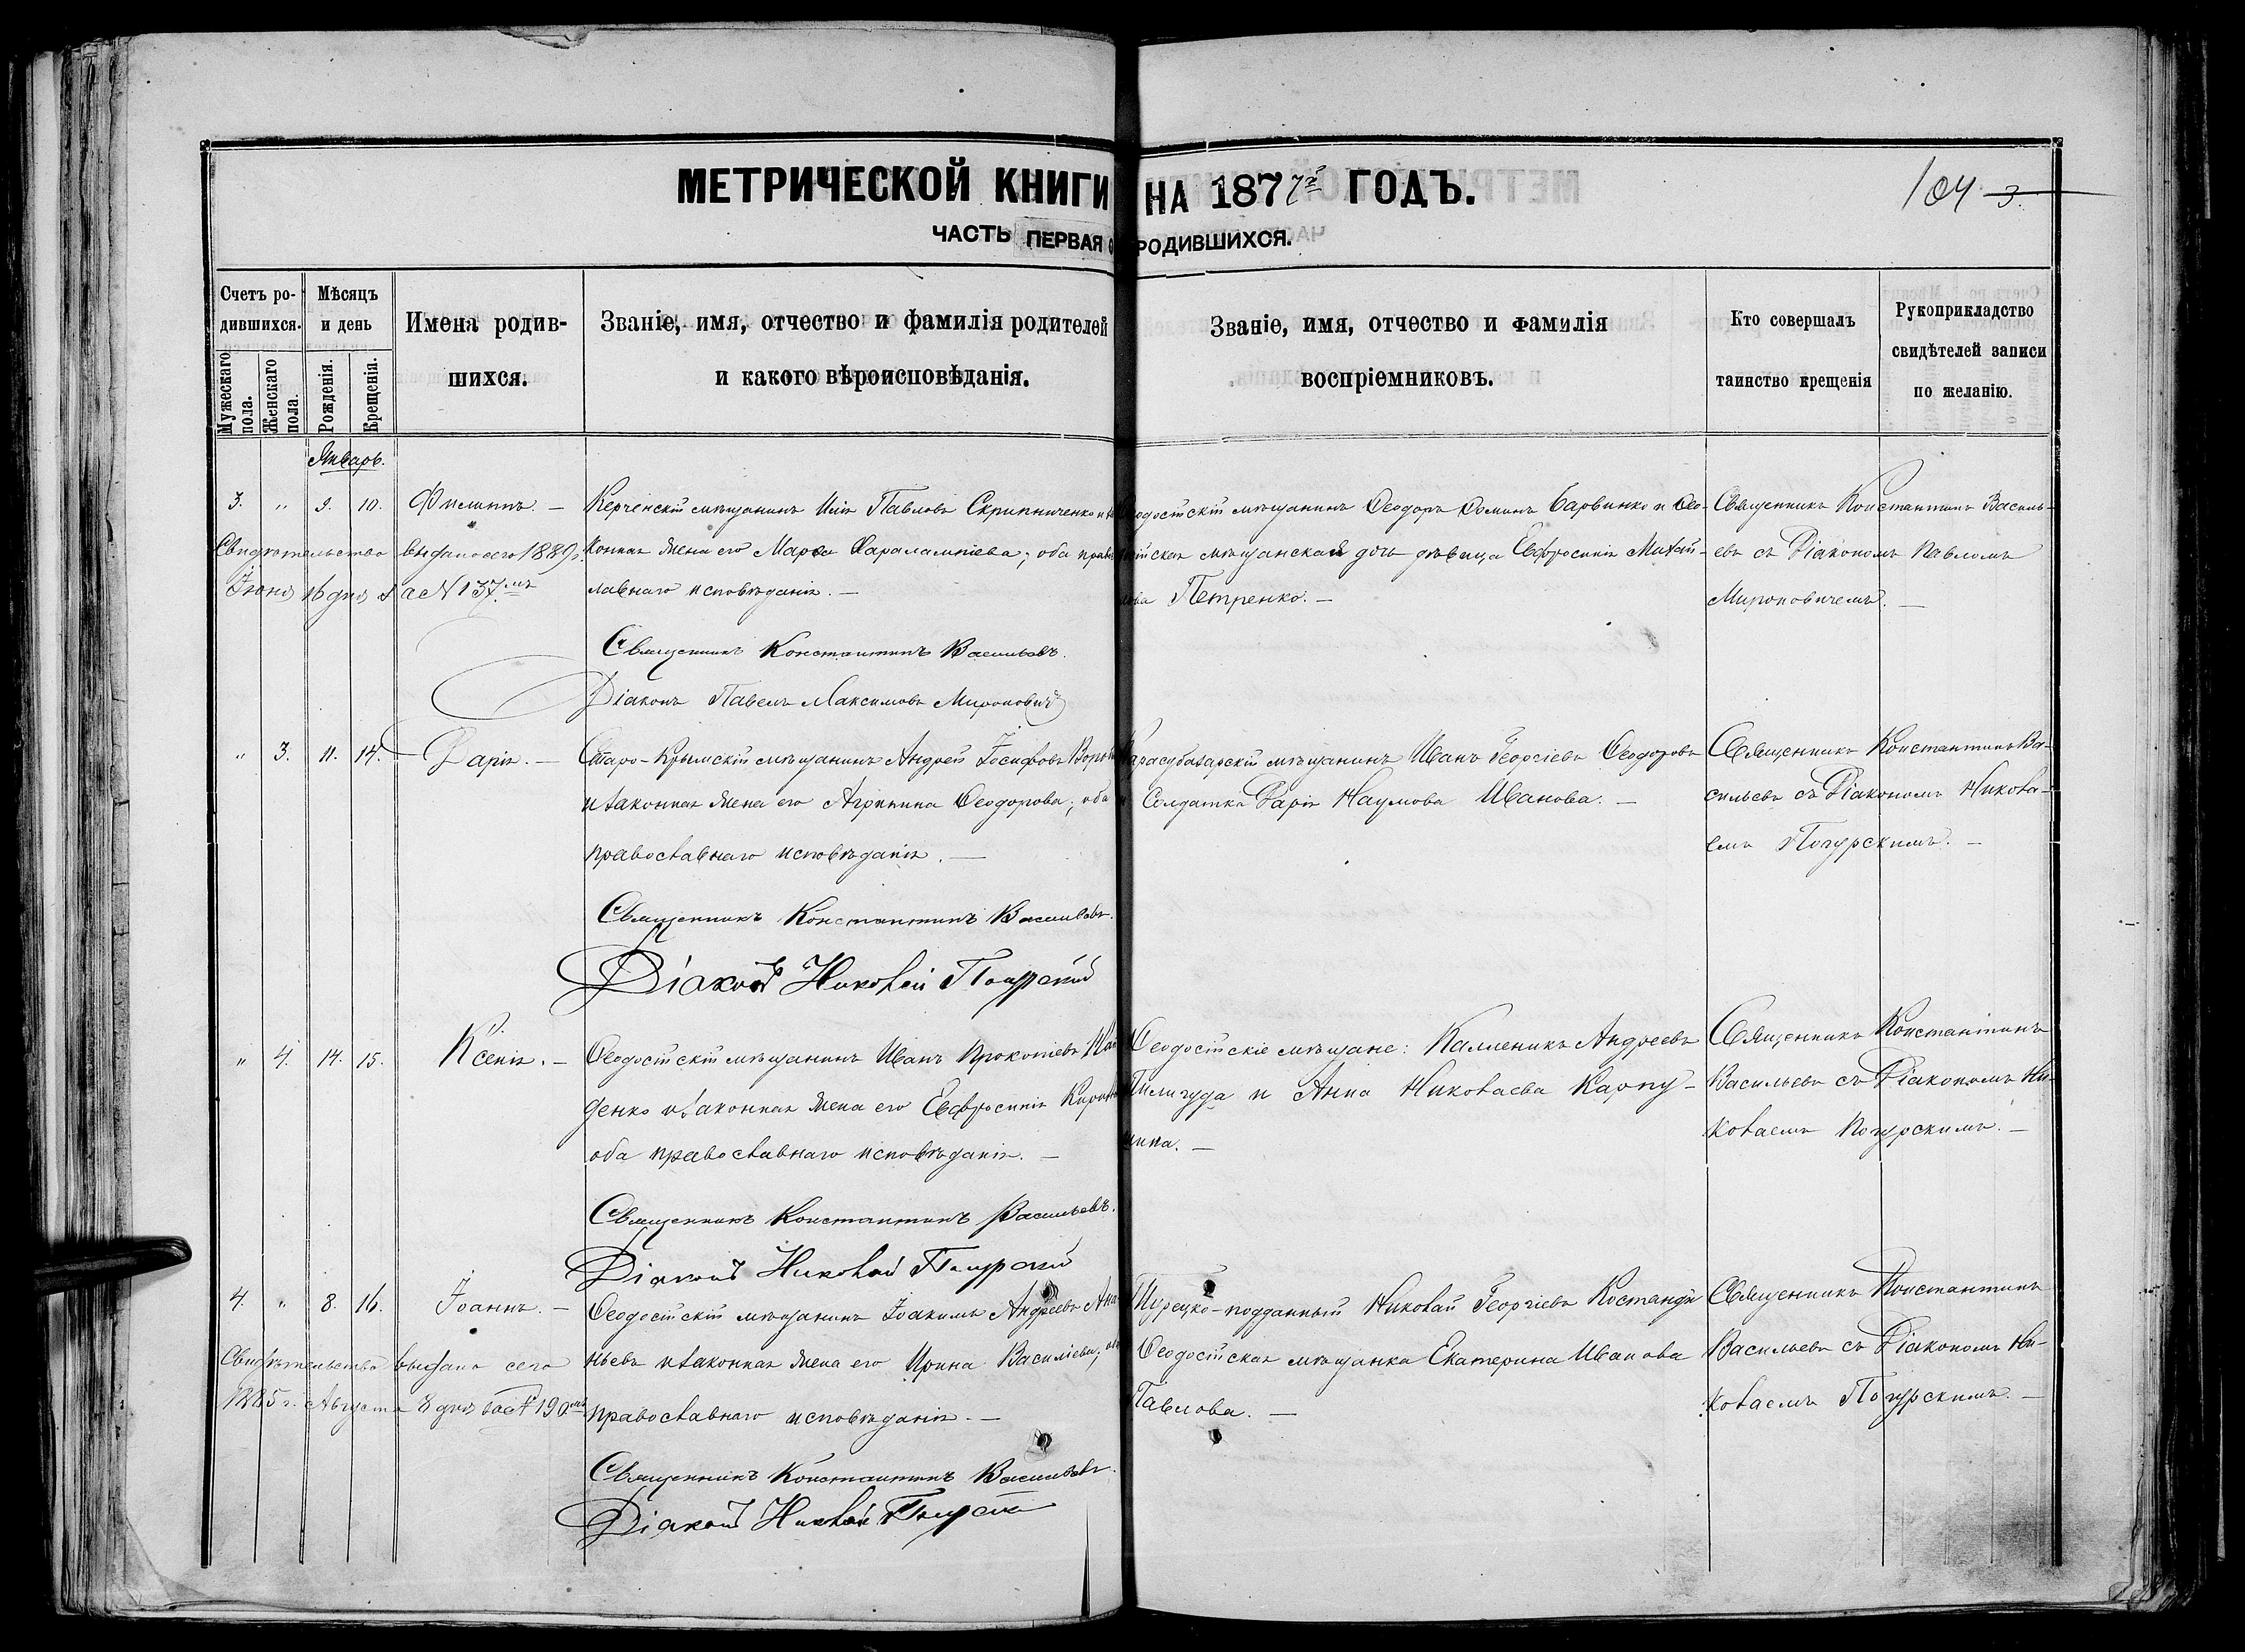 МЕТРИЧЕСКОЙ КНИГИ НА 1877й ГОДЪ.
104
3.
ЧАСТЬ ПЕРВАЯ О РОДИВШИХСЯ.
Счетъ ро-
дившихся.
Мужескаго пола.
Женскаго пола.
Мѣсяцъ
и день
Рожденія.
Крещенія.
Имена родив-
шихся.
Званіе, имя, отчество и фамилія родителей
и какого вѣроисповѣданія.
Званіе, имя, отчество и фамилія
воспріемниковъ.
Кто совершалъ
таинство крещенія
Рукоприкладство
свидѣтелей записи
по желанію.
Январь.
3. " 9. 10. Филиппъ. –
Керченскій мѣщанинъ Илія Павловъ Скрипниченко и за
конная жена его Марѳа Харалампіева; оба право
славнаго исповѣданія. –
Священникъ Константинъ Васильевъ.
Діаконъ Павелъ Максимовъ Мироновичъ
Ѳеодосійскій мѣщанинъ Ѳеодоръ Ѳоминъ Барвинко и Ѳео-
досійская мѣщанская дочь дѣвица Евфросинія Михай-
лова Петренко. –
Священникъ Константинъ Василь-
евъ съ Діакономъ Павломъ
Мироновичемъ. –
Свидѣтельство выдано сего 1889 г.
Іюня 16 дня за № 137мъ
" 3. 11. 14. Дарія. –
Старо-Крымскій мѣщанинъ Андрей Іосифовъ
и законная жена его Агрипина Ѳеодорова; оба
православнаго исповѣданія. –
Священникъ Константинъ Васильевъ.
Діаконъ Николай Погурскій
Карасубазарскій мѣщанинъ Иванъ Георгіевъ Ѳеодоровъ
и Солдатка Дарія Наумова Иванова. –
Священникъ Константинъ Ва-
сильевъ съ Діакономъ Никола-
емъ Погурскимъ. –
" 4. 14. 15. Ксенія. –
Ѳеодосійскій мѣщанинъ Иванъ Прокопіевъ
денко и законная жена его Евфросинія
оба православнаго исповѣданія. –
Священникъ Константинъ Васильевъ.
Діаконъ Николай Погурскій
Ѳеодосійскіе мѣщане: Каленикъ Андреевъ
Пиличуда и Анна Николаева Карпу-
шина. –
Священникъ Константинъ
Васильевъ съ Діакономъ Ни-
колаемъ Погурскимъ. –
4. " 8. 16. Іоаннъ. –
Ѳеодосійскій мѣщанинъ Іоакимъ Андреевъ Ана
ньевъ и законная жена его Ирина Васильева; оба
православнаго исповѣданія. –
Священникъ Константинъ Васильевъ.
Діаконъ Николай Погурскій
Турецко-подданный Николай Георгіевъ Костанди
Ѳеодосійская мѣщанка Екатерина Иванова
Павлова. –
Священникъ Константинъ
Васильевъ съ Діакономъ Ни-
колаемъ Погурскимъ. –
Свидѣтельство выдано сего
1885 г. Августа 8 дня за № 190мъ